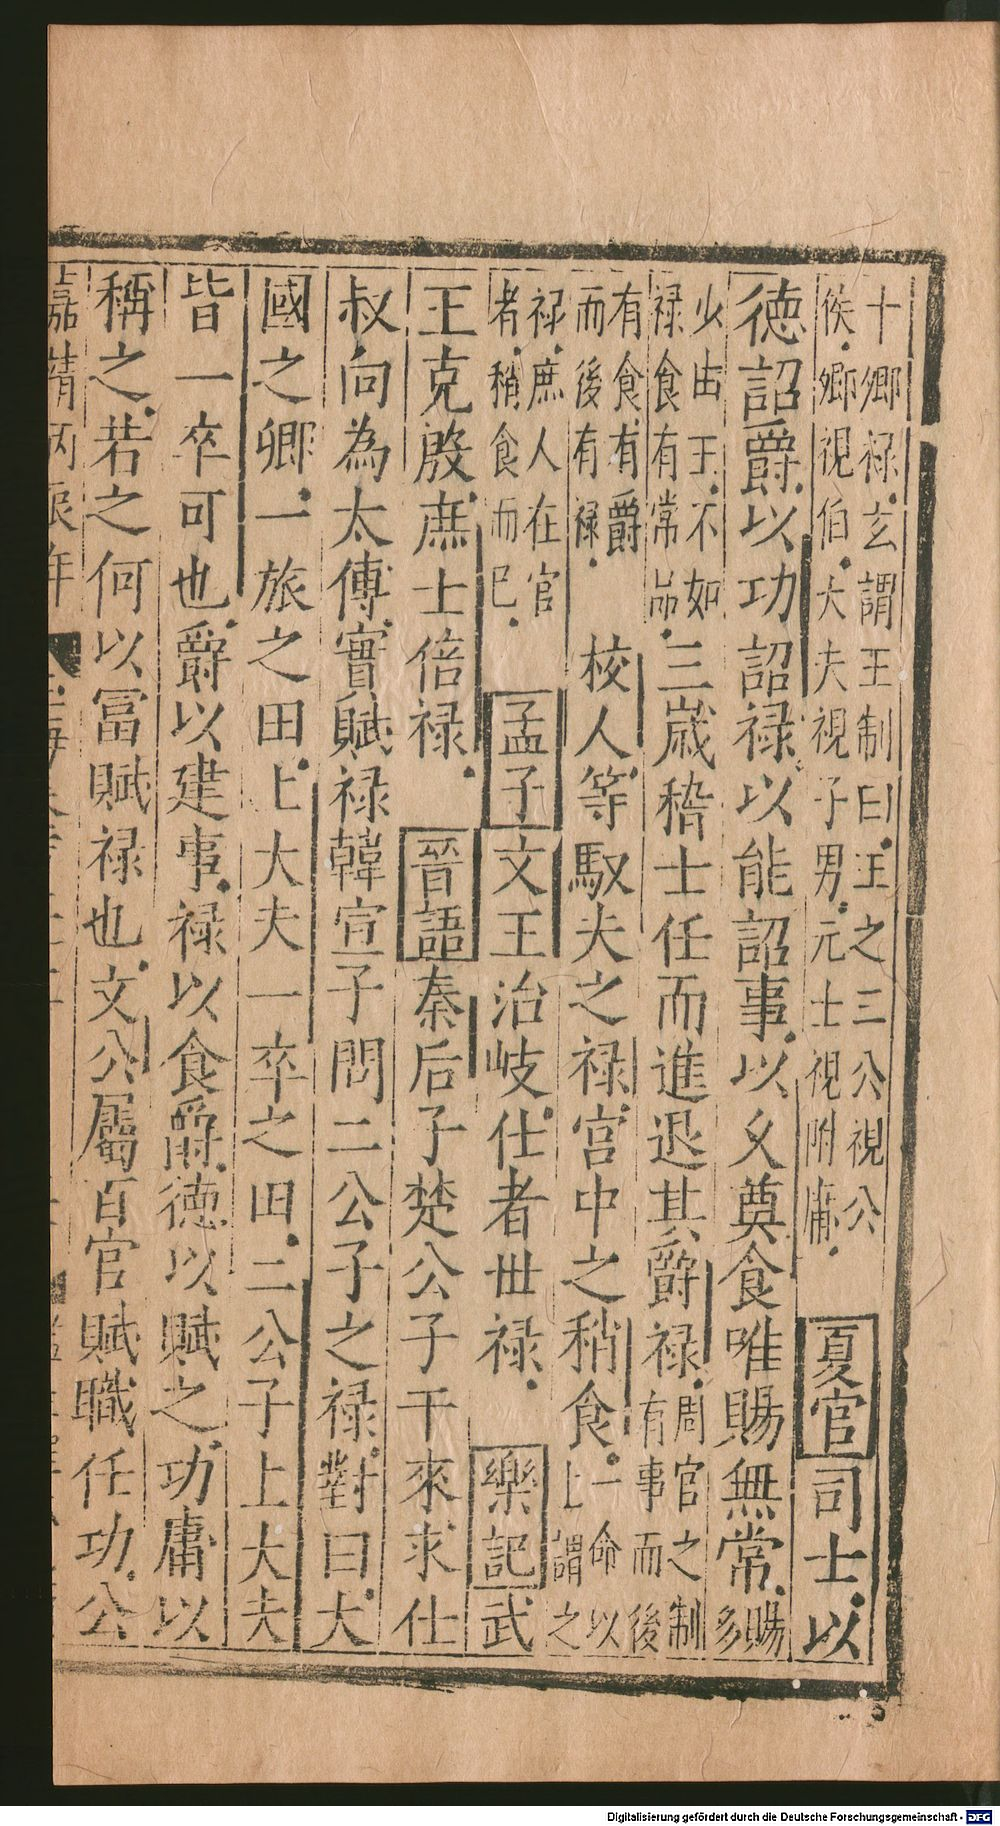 十卿禄玄謂王制曰王之三公視公
侯卿視伯大夫視子男元士視附庸 夏官司士以
德詔爵以功詔禄以能詔事以久奠食唯賜無常賜多
少由王不如禄食有常品三歳稽士任而進退其爵禄周官之制有事而後
有食有爵而後有禄 校人等馭夫之禄宫中之稍食一命以上謂之
禄庶人在官者稍食而已 孟子文王治岐仕者丗禄 樂記武
王克殷庶士倍禄 晉語秦后子楚公子干來求仕
叔向為太傅實賦禄韓宣子問二公子之禄對曰大
國之卿一旅之田上大夫一卒之田二公子上大夫
皆一卒可也爵以建事禄以食爵德以賦之功庸以
稱之若之何以冨賦禄也文公屬百官賦職任功公
嘉靖丙辰年
Digitalisierung gefördert durch die Deutsche Forschungsgemeinschaft - DFG